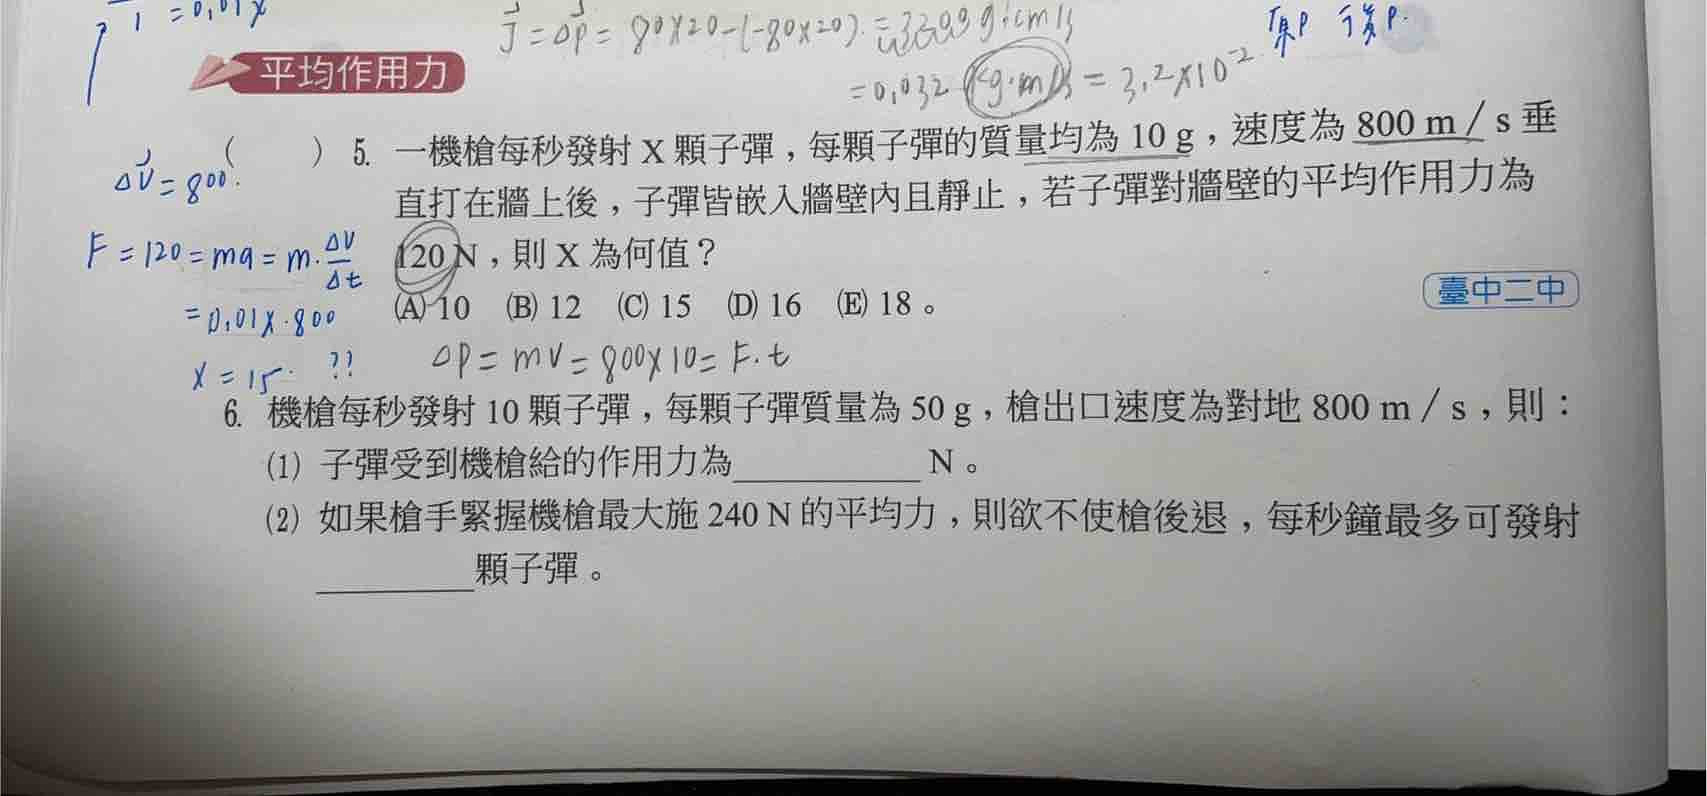 1 = 0.01X
J = ΔP = 80×20-(-80×20). = 3200 g·cm/s
= 0.032 kg·m/s = 3.2×10⁻²
後P.
平均作用力
( ) 5. 一機槍每秒發射 X 顆子彈,每顆子彈的質量均為 10 g,速度為 800 m/s 垂
直打在牆上後,子彈皆嵌入牆壁內且靜止,若子彈對牆壁的平均作用力為
120 N,則 X 為何值?
(A) 10 (B) 12 (C) 15 (D) 16 (E) 18。
臺中二中
ΔV = 800.
F = 120 = ma = m·ΔV/Δt
= 0.01X·800
X = 15. ??
ΔP = mv = 800×10 = F.t
6. 機槍每秒發射 10 顆子彈,每顆子彈質量為 50 g,槍出口速度為對地 800 m/s,則:
(1) 子彈受到機槍給的作用力為 N。
(2) 如果槍手緊握機槍最大施 240 N 的平均力,則欲不使槍後退,每秒鐘最多可發射
顆子彈。